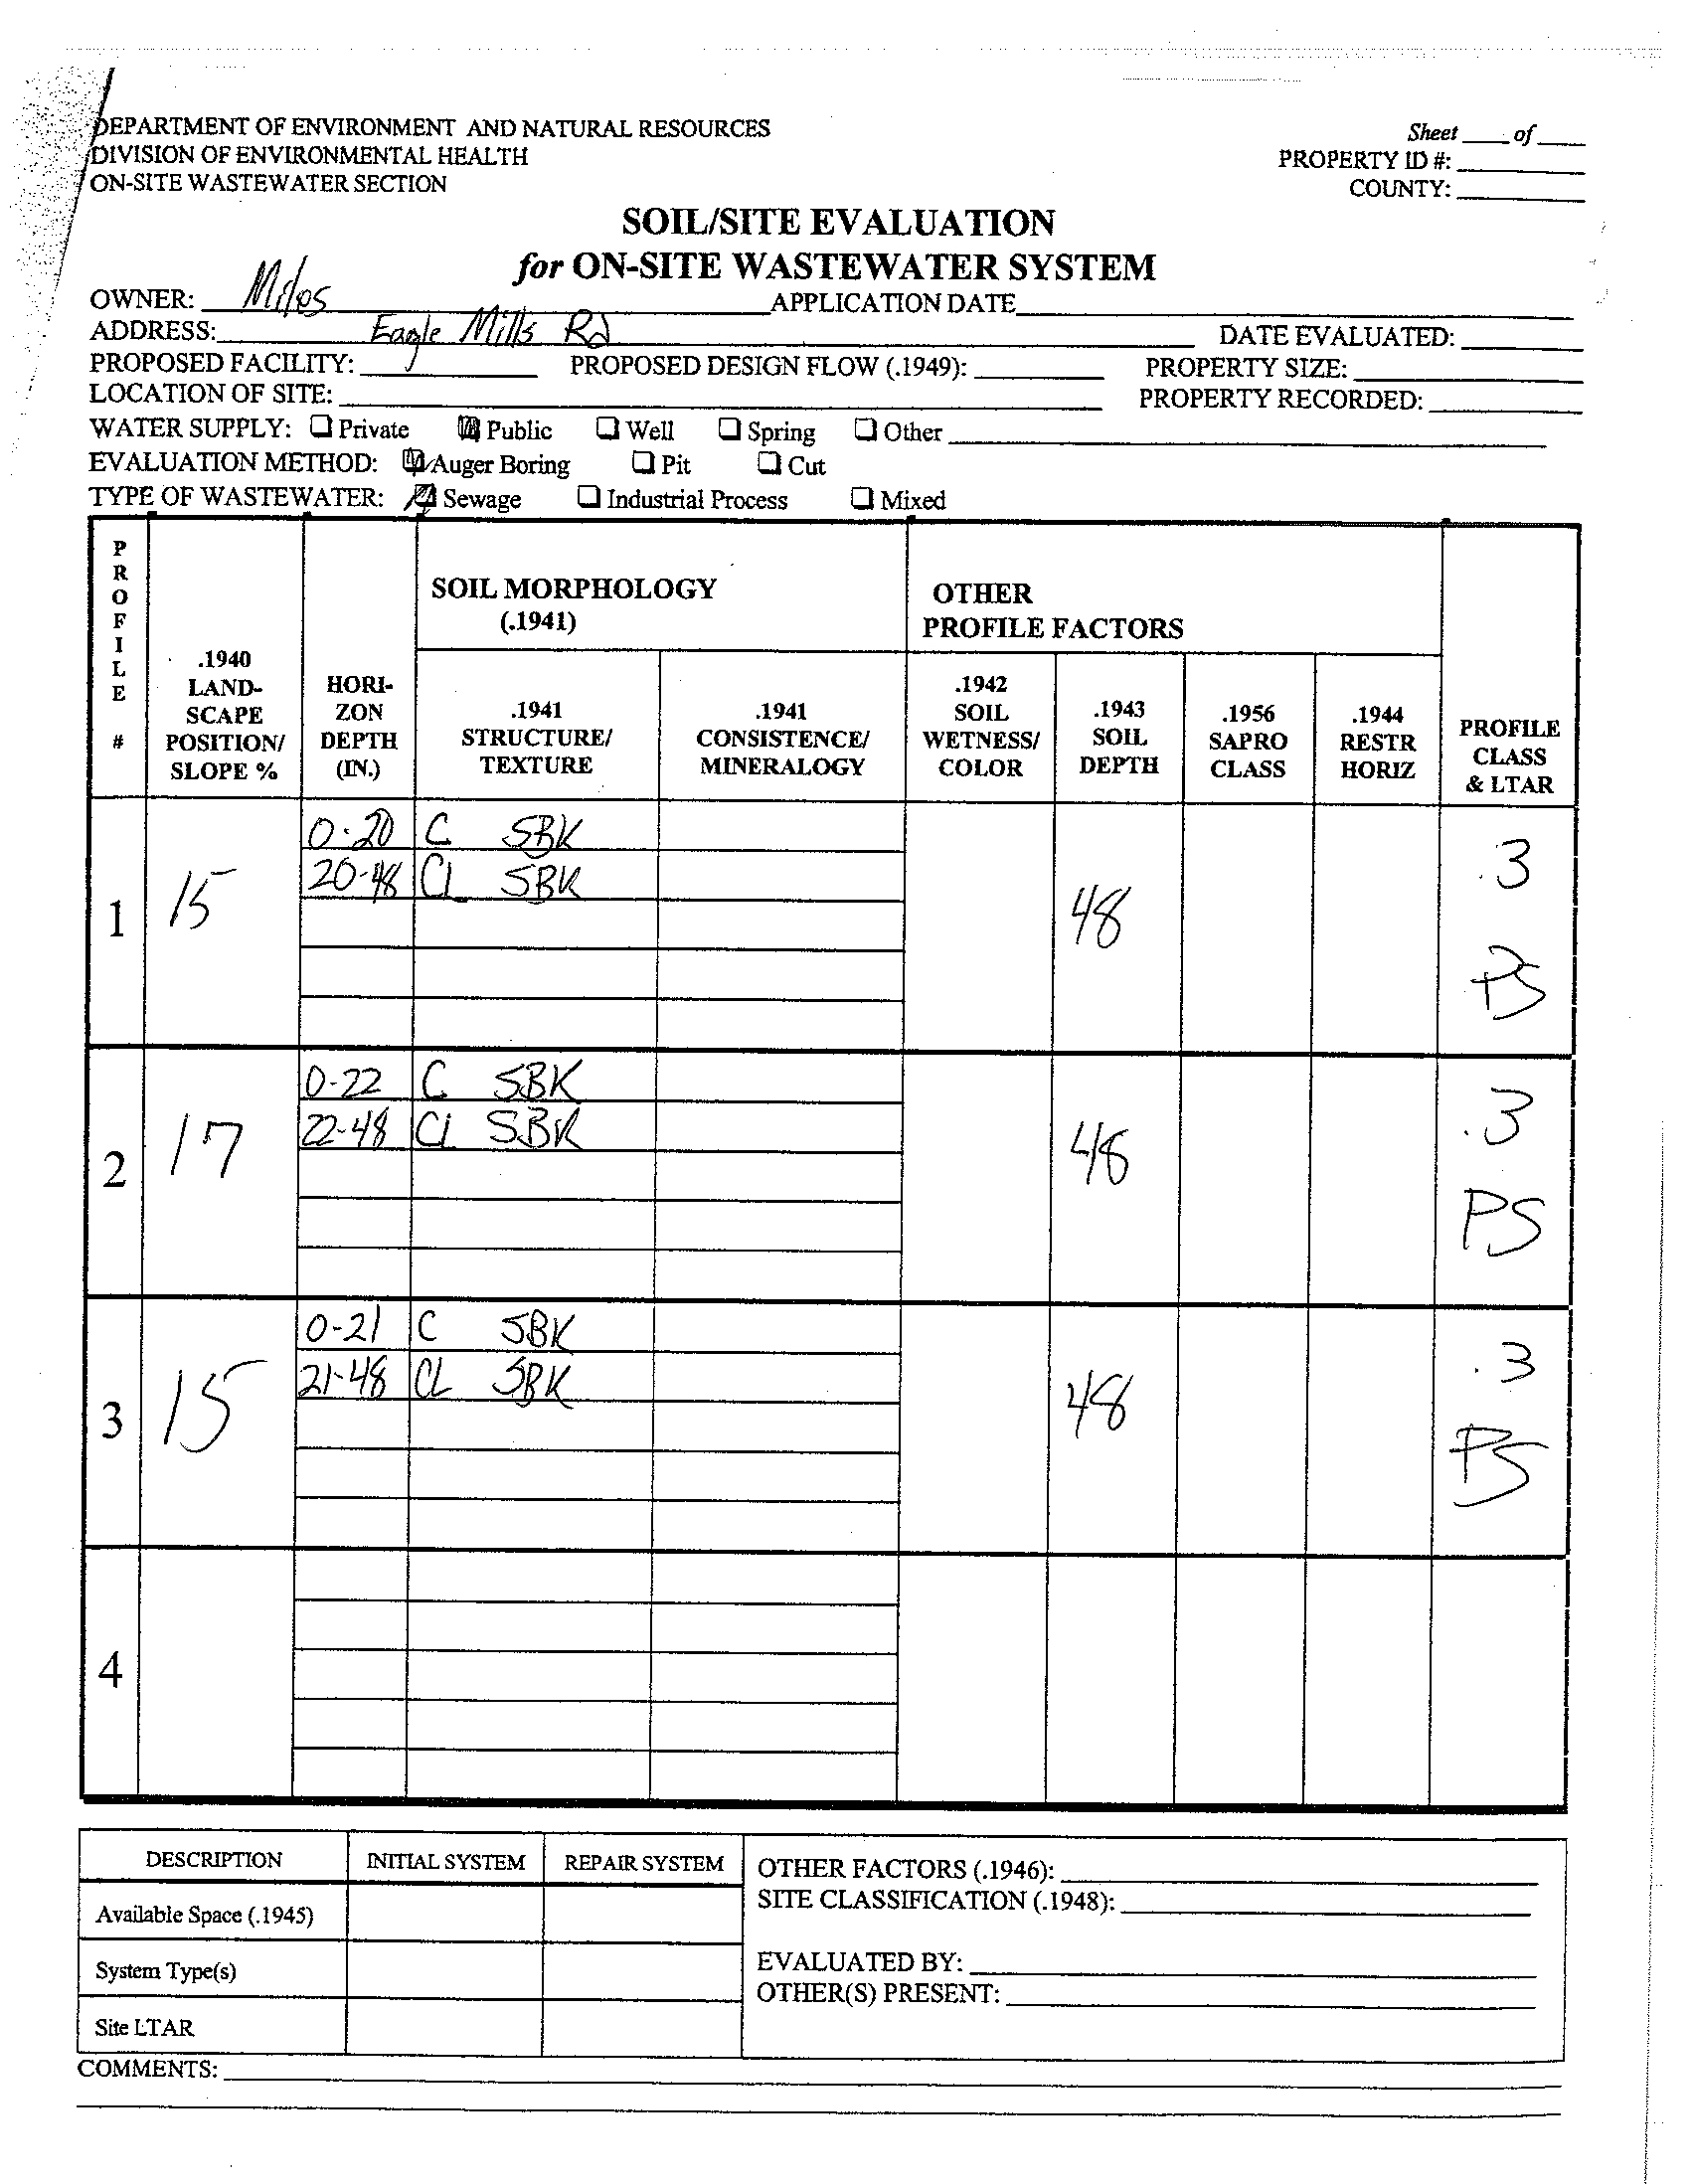 DEPARTMENT OF ENVIRONMENT AND NATURAL RESOURCES
DIVISION OF ENVIRONMENTAL HEALTH
ON-SITE WASTEWATER SECTION
Sheet ____ of ____
PROPERTY ID #: ____
COUNTY: ____
SOIL/SITE EVALUATION
for ON-SITE WASTEWATER SYSTEM
OWNER: Miles APPLICATION DATE ____
ADDRESS: Eagle Mills Rd DATE EVALUATED: ____
PROPOSED FACILITY: ____ PROPOSED DESIGN FLOW (.1949): ____ PROPERTY SIZE: ____
LOCATION OF SITE: ____ PROPERTY RECORDED: ____
WATER SUPPLY: ☐ Private ☒ Public ☐ Well ☐ Spring ☐ Other ____
EVALUATION METHOD: ☒ Auger Boring ☐ Pit ☐ Cut
TYPE OF WASTEWATER: ☒ Sewage ☐ Industrial Process ☐ Mixed
PROFILE #
.1940
LAND-
SCAPE
POSITION/
SLOPE %
HORI-
ZON
DEPTH
(IN.)
SOIL MORPHOLOGY
(.1941)
.1941
STRUCTURE/
TEXTURE
.1941
CONSISTENCE/
MINERALOGY
OTHER
PROFILE FACTORS
.1942
SOIL
WETNESS/
COLOR
.1943
SOIL
DEPTH
.1956
SAPRO
CLASS
.1944
RESTR
HORIZ
PROFILE
CLASS
& LTAR
1
15
0-20 C SBK
20-48 CL SBK
48
.3
PS
2
17
0-22 C SBK
22-48 CL SBK
48
.3
PS
3
15
0-21 C SBK
21-48 CL SBK
48
.3
PS
4
DESCRIPTION INITIAL SYSTEM REPAIR SYSTEM
Available Space (.1945)
System Type(s)
Site LTAR
OTHER FACTORS (.1946): ____
SITE CLASSIFICATION (.1948): ____
EVALUATED BY: ____
OTHER(S) PRESENT: ____
COMMENTS: ____